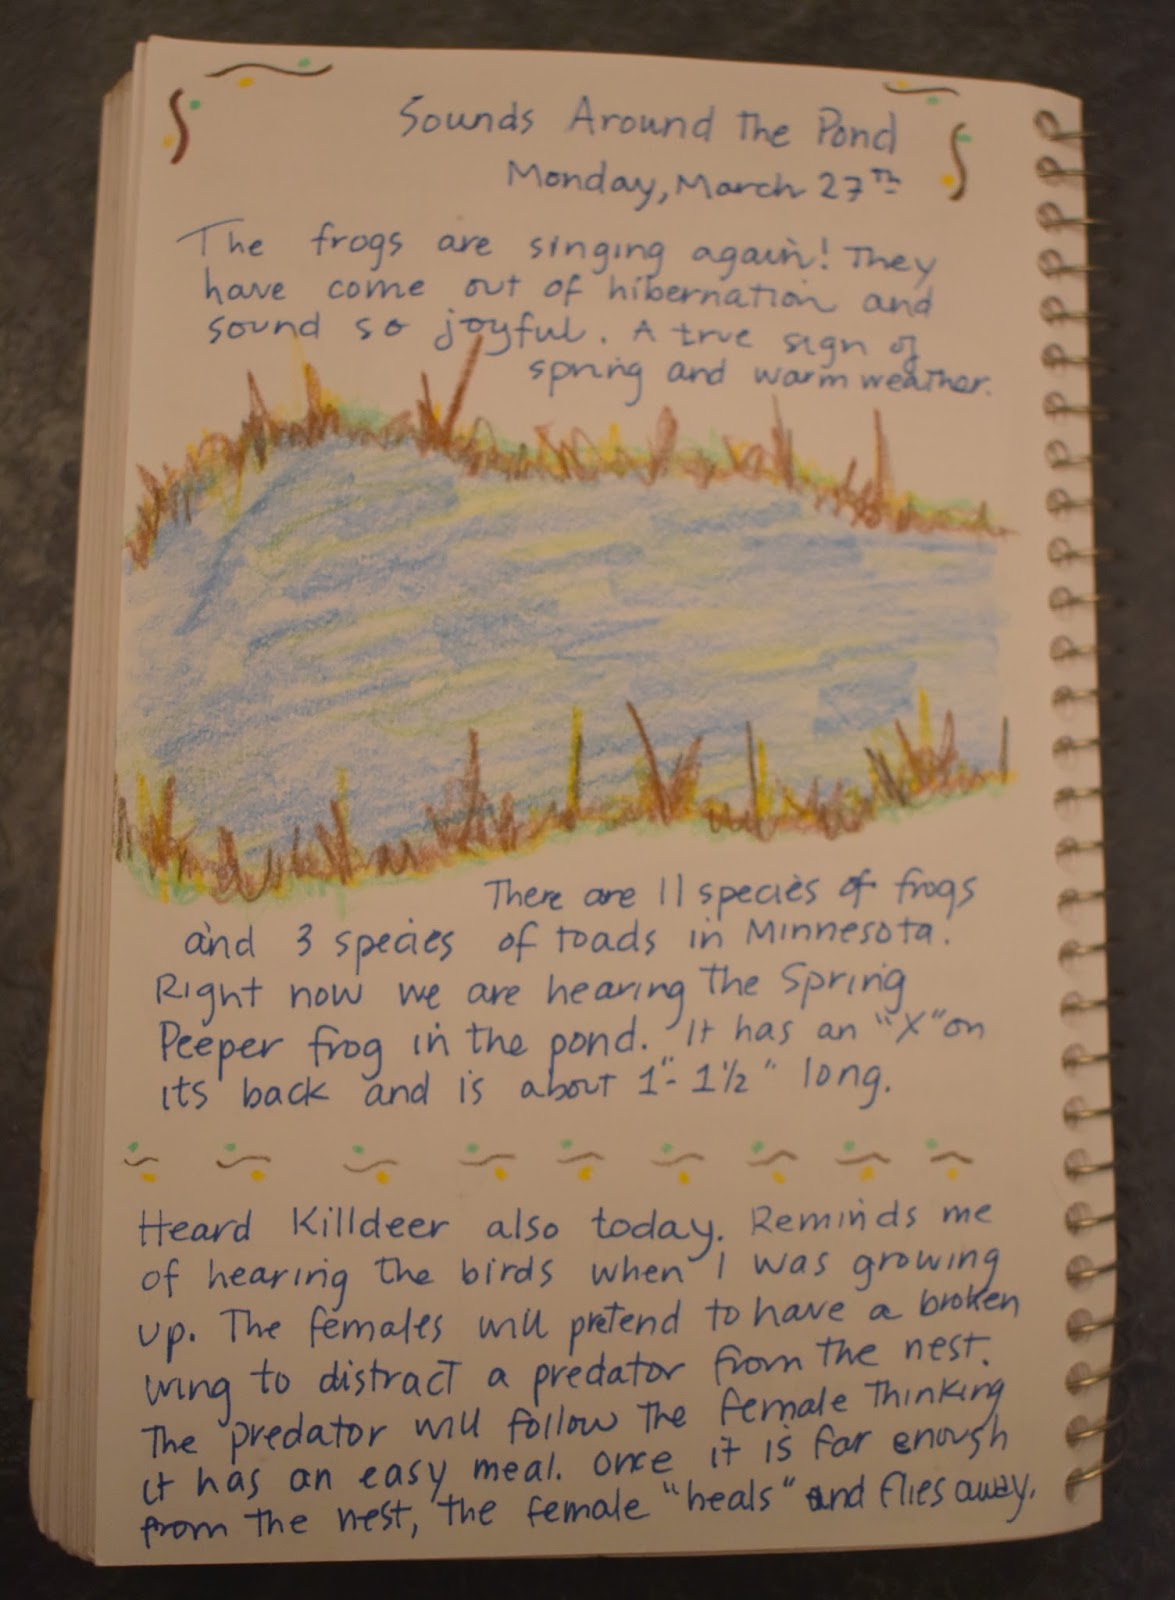 Sounds Around The Pond
Monday, March 27Th
The frogs are singing again! They
have come out of hibernation and
sound so joyful. A true sign of
spring and warm weather.
There are 11 species of frogs
and 3 species of toads in Minnesota.
Right now we are hearing the Spring
Peeper frog in the pond. It has an "X" on
its back and is about 1"- 1½" long.
Heard Killdeer also today. Reminds me
of hearing the birds when I was growing
up. The females will pretend to have a broken
wing to distract a predator from the nest.
The predator will follow the female thinking
it has an easy meal. Once it is far enough
from the nest, the female "heals" and flies away.